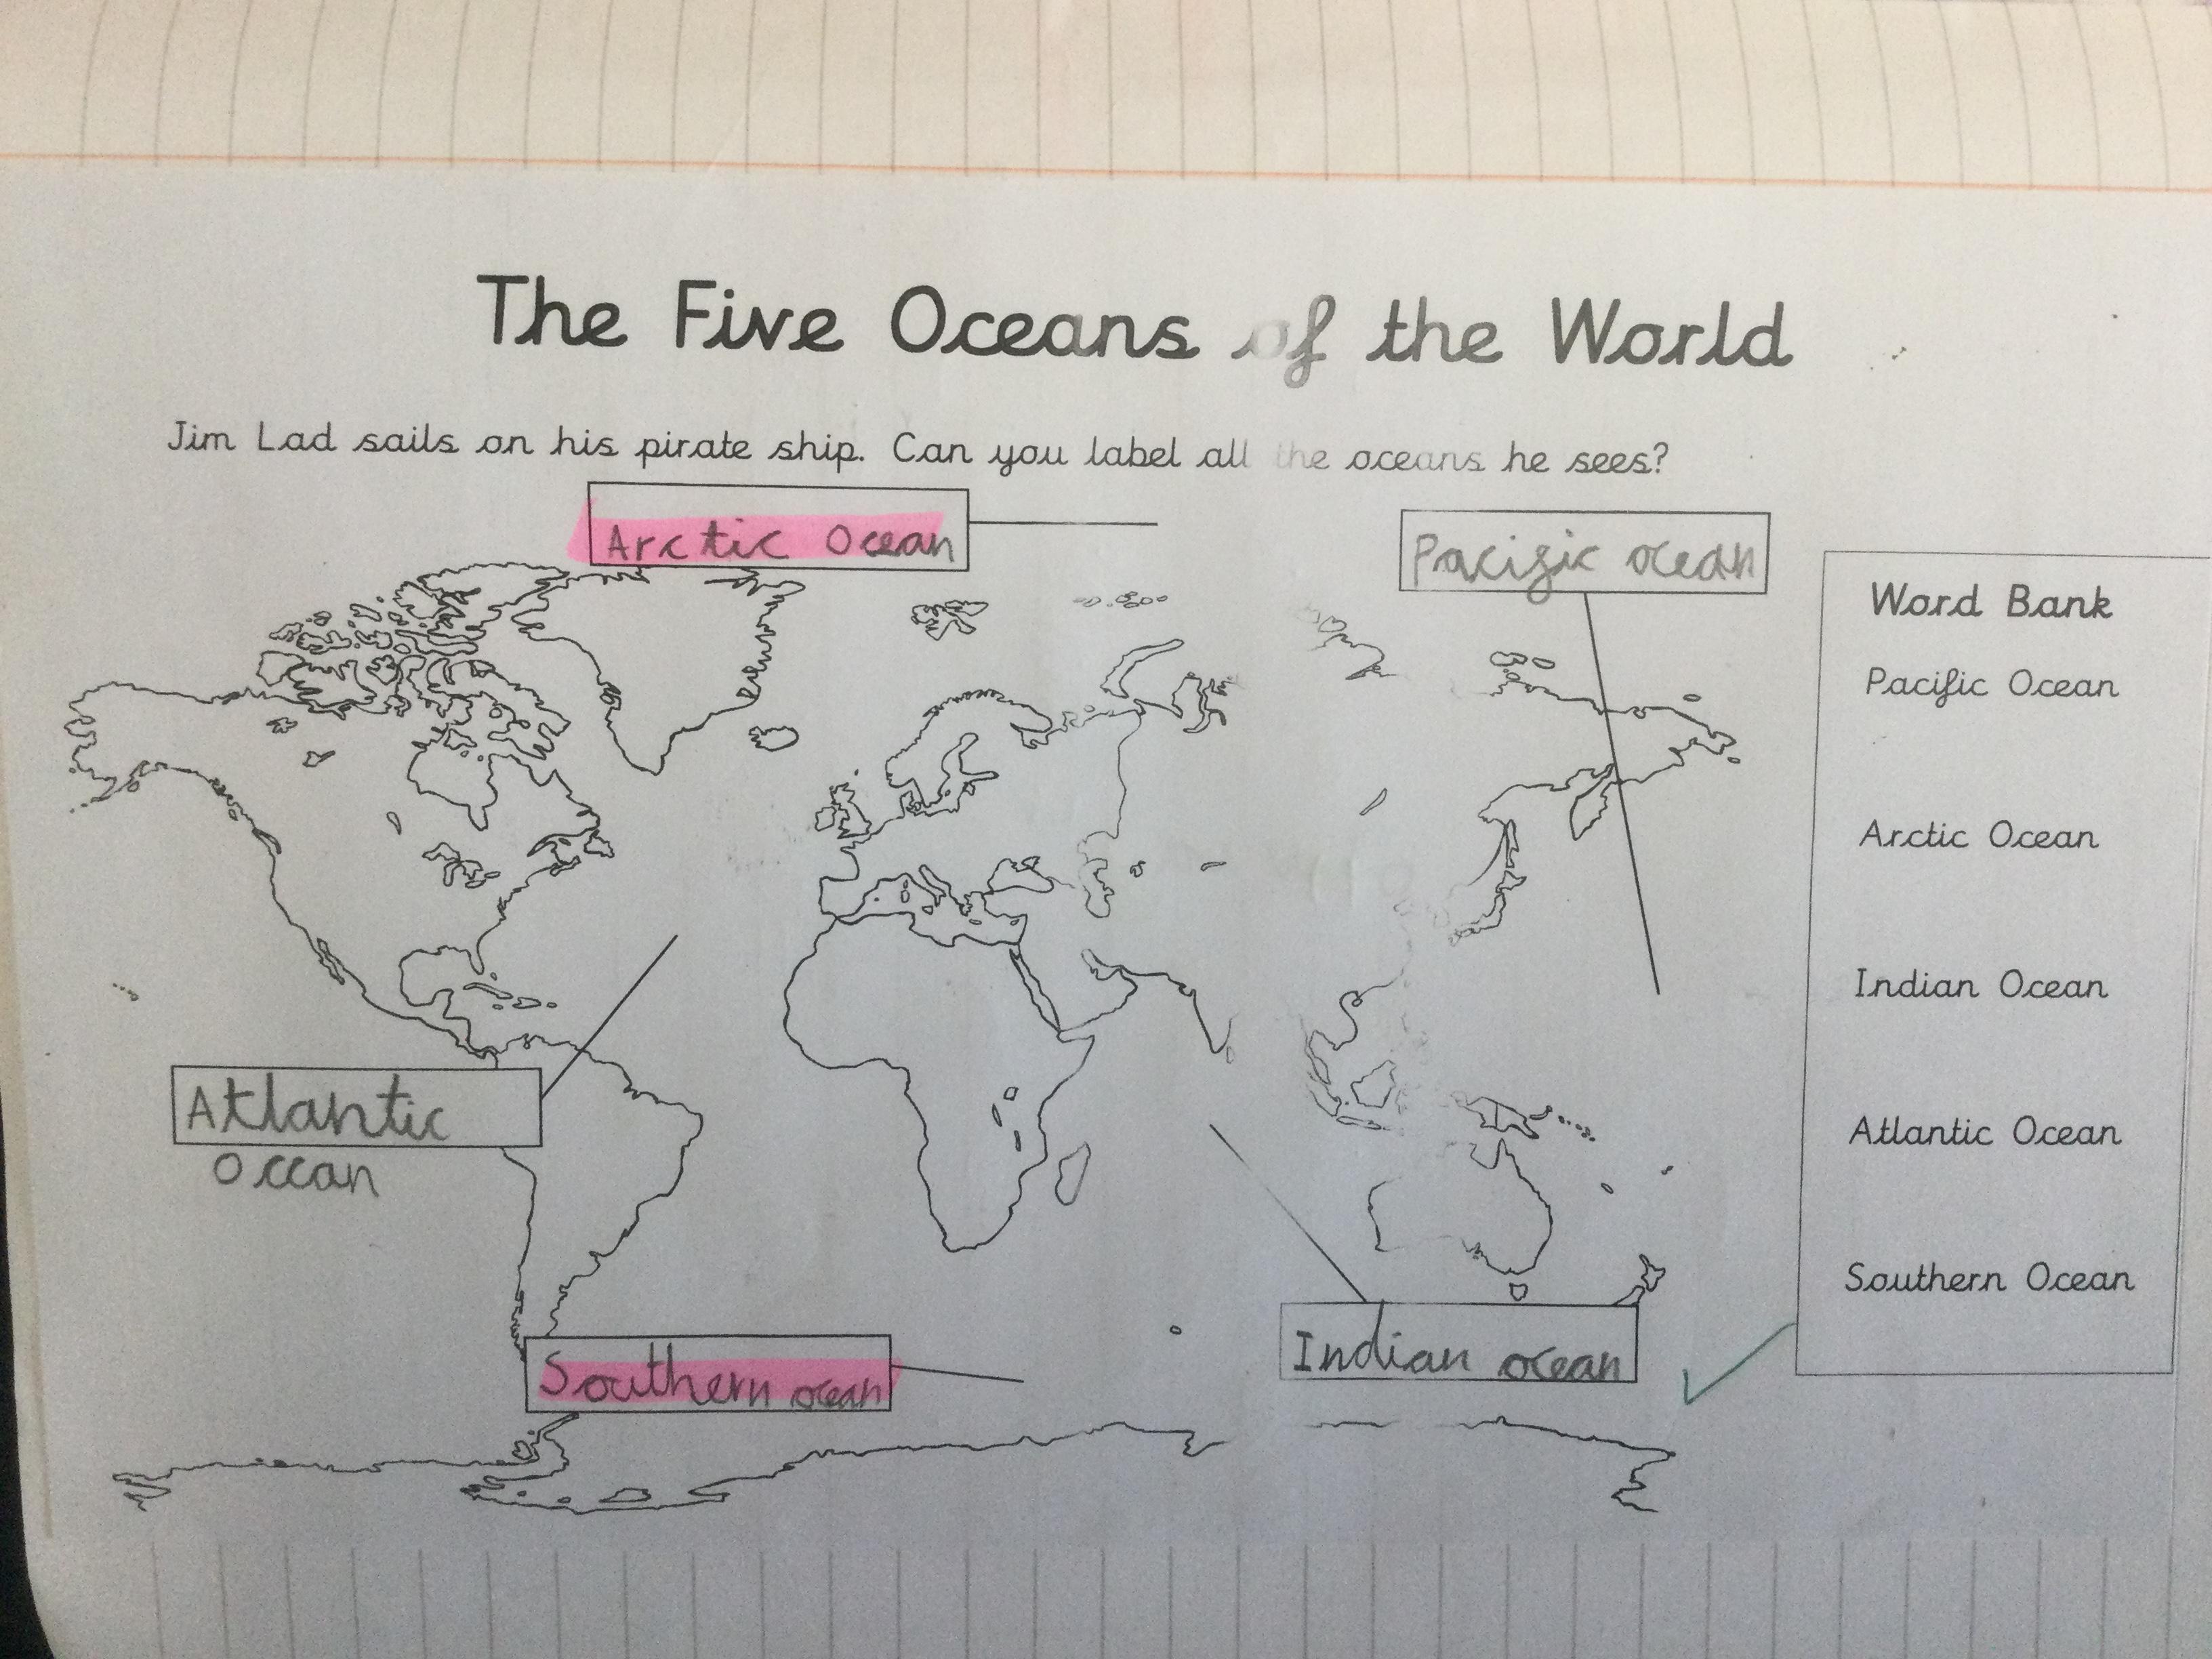 The Five Oceans of the World
Jim Lad sails on his pirate ship. Can you label all the oceans he sees?
Arctic Ocean
Pacific ocean
Word Bank
Pacific Ocean
Arctic Ocean
Indian Ocean
Atlantic Ocean
Southern Ocean
Atlantic
Ocean
Southern ocean
Indian ocean